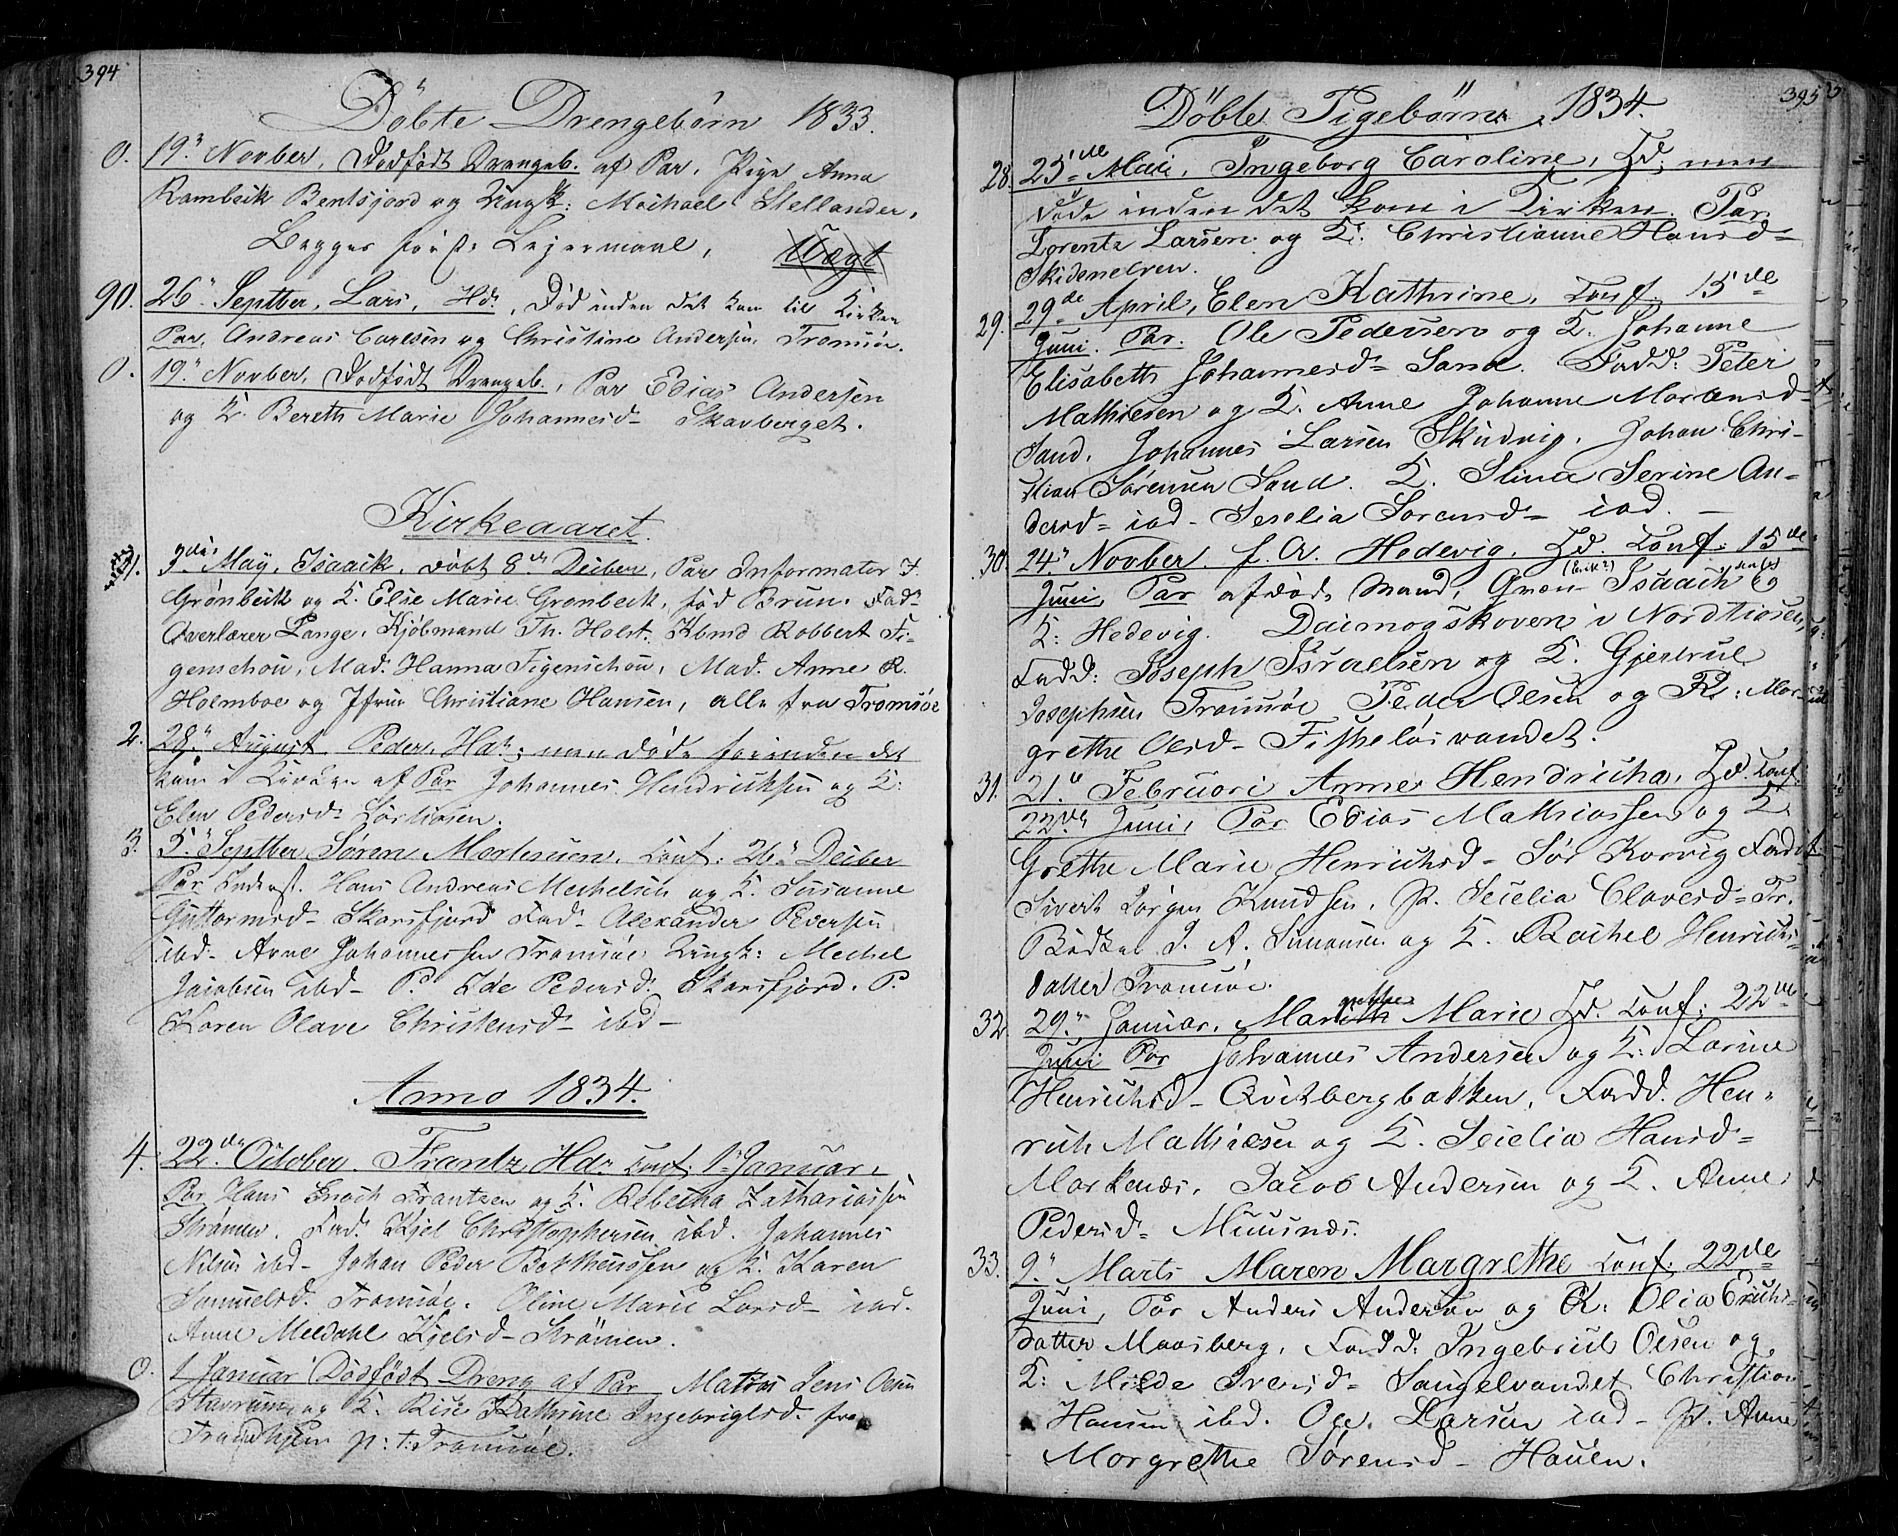 394
Döbte Drengebörn 1833.
0. 19" Novber, Dödfödt Drengeb. af Par. Pige Anna
Rambeck Bentsjord og Ungk: Michael Stellander,
Begges förste Lejermaal,
90. 26" Septber, Lars, Hd:, Död inden det kom til Kirken
Par, Andreas Carlsen og Christine Andersen, Tromsöe.
0. 19" Novber, Dödfödt Drengeb., Par Edias Andersen
og K. Bereth Marie Johannesd- Skavberget.
Kirkeaaret.
1. 3die May, Isaack, döbt 8de Decber, Par Informator F.
Grönbeck og K. Else Marie Grönbeck, föd Brun. Fad-
Overlærer Lange, Kjöbmand Th. Holst. Kbmd Robbert Fi-
genschou, Mad. Hanna Figenschou, Mad. Anne R.
Holmboe og Jfrue Christiane Hansen, alle fra Tromsöe
2. 28" August Peder, Hd:; men döde forinden det
kom i Kirken af Par Johannes Hendrichsen og K:
Elen Pedersd-
3. 5" Septber Sören Mortenssen, Conf: 26" Decber
Par Inderst. Hans Andreas Mechelsen og K. Susanne
Guttormsd- Skarsfjord Fad- Alexander Pedersen
ibd- Arne Johannessen Tromsöe Ungk: Mechel
Jacobsen ibd- P. Ide Pedersd. Skarsfjord. P.
Karen Olave Christensd- ibd-
Anno 1834.
4. 22de October. Frantz, Hd: Conf: 1" Januar.
Par Hans Enoch Frantzen og K. Rebecha Zachariassen
Strömen. Fad: Kjel Christophersen ibd. Johannes
Nilsen ibd- Johan Peder Baltheussen og K. Karen
Samuelsd. Tromsöe. Oline Marie Larsd- ibd.
Anne Meldahl Kjelsd- Strömen.
0. 1 Januar Dödfödt Dreng af Par Matros Jens
Stavrum og K. Kathrine Ingebrigtsd. fra
Trondhjem p: t: Tromsöe.
395
Döbte Pigebörn 1834.
28. 25de Mai, Ingeborg Caroline, Hd; men
döde inden det kom i Kirken. Par
Lorentz Larsen og K: Christianne Hansd-
Skidenelven.
29. 29de April, Elen Kathrine, Conf. 15de
Juni. Par. Ole Pedersen og K. Johanne
Elisabeth Johannesd- Sand. Fadd: Peter
Mathiesen og K. Anne Johanne Mortensd-
Sand, Johannes Larsen Skudvig. Johan Chri-
stian Sörensen Sand. K. Stina Serine An-
dersd- ibd- Seselia Sörensd- ibd. -
30. 24" Novber f. A. Hedevig, Hd. Conf: 15de
Juni, Par afdöd Mand, Isaach og
K: Hedevig. Daimogskoven i Nordkiosen,
Fadd: Joseph Israelsen og K. Gjertrue
Josephsen Tromsöe Peder Olsen og K: Mar-
grethe Olsd- Fiskelösvandet.
31. 21" Februari Anne Hendricha, Hd. Conf:
22de Juni, Par Edias Mathiassen og K.
Grethe Marie Henrichsd- Sör Korvig Fadd:
Sivert Jörgen Knudsen, P. Seselia Olavesd- Tr.
J. A. Simonsen og K. Rachel Henrichs-
datter Tromsöe.
32. 29" Januar, Margrethe Marie Hd. Conf: 22de
Juni Par Johannes Andersen og K: Lorine
Henrichsd- Qvitbergbakken, Fadd. Hen-
rich Mathiesen og K. Seselia Hansd-
Markenæs. Jacob Andersen og K. Anne
Pedersd- Muusnæs.
33. 9" Marts Maren Margrethe Conf: 22de
Juni, Par Anders Andersen og K: Olia Erichs-
datter Maasberg, Fadd: Ingebrict Olsen og
K: Milde Iversd- Sangelvandet Christian
Hansen ibd. Ole Larsen ibd- P. Anne
Morgrethe Sörensd- Hauen.